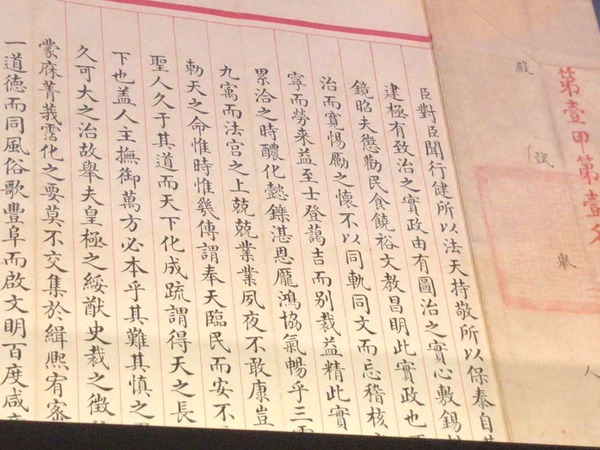 第壹甲第壹名
殿試舉人
臣對臣聞行健所以法天持敬所以保泰自
建極有致治之實政由有圖治之實心敷錫
鏡昭夫懲勸民食饒裕文教昌明此實政也
治而寬惕勵之懷不以同軌同文而忘稽核
寧而勞來益至士登藹吉而別裁益精此實
累洽之時醲化懿鑠湛恩龐鴻協氣暢乎三
九寓而法宮之上兢兢業業夙夜不敢康豈
勑天之命惟時惟幾傳謂奉天臨民而安不
聖人久于其道而天下化成疏謂得天之長
下也盖人主撫御萬方必本乎其難其慎之
久可大之治故舉夫皇極之綏猷史裁之徵
蒙庥菁莪霑化之要莫不交集於緝熙宥密
一道德而同風俗歌豐阜而啟文明百度咸